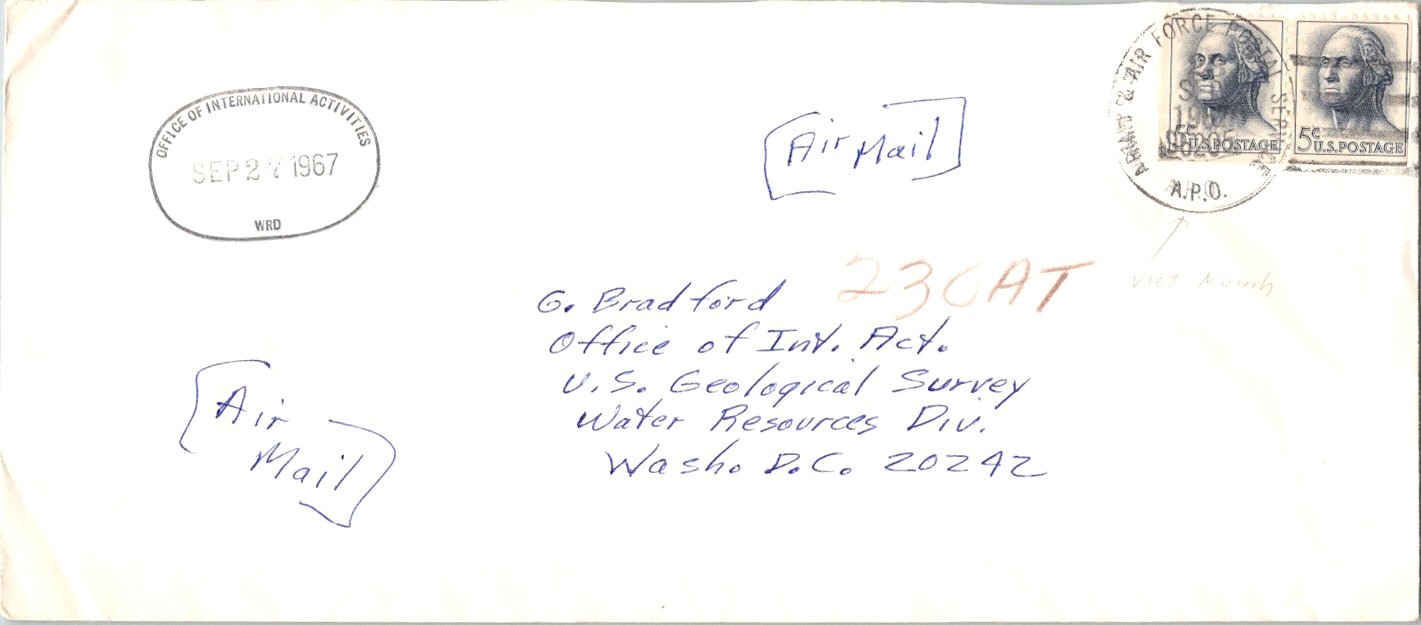 OFFICE OF INTERNATIONAL ACTIVITIES
SEP 27 1967
WRD
Air Mail
ARMY & AIR FORCE POSTAL SERVICE
A.P.O.
5¢
U.S. POSTAGE
5¢
U.S. POSTAGE
Viet Namh
23CAT
G. Bradford
Office of Int. Act.
U.S. Geological Survey
Water Resources Div.
Wash. D.C. 20242
Air
Mail